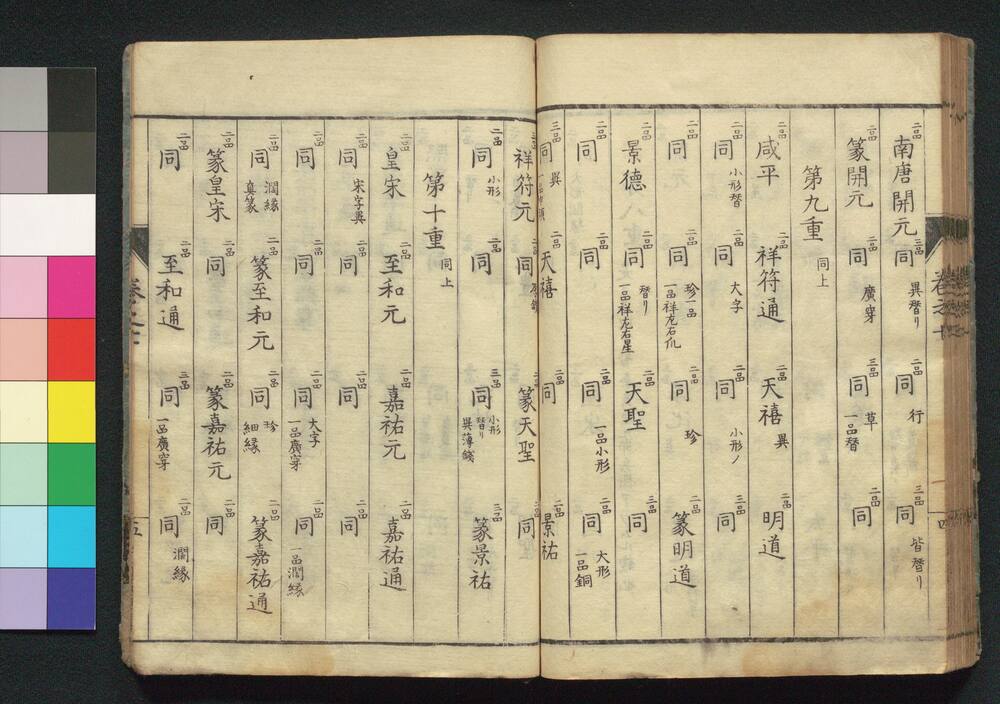 二品 南唐開元 三品 同 異替り 二品 同 行 三品 同 皆替り
二品 篆開元 二品 同 廣穿 三品 同 草 一品替 二品 同
第九重 同上
二品 咸平 二品 祥符通 二品 天禧 異 二品 明道
二品 同 小形替 二品 同 大字 二品 同 小形ノ 三品 同
二品 同 二品 同 珍一品 一品祥左右 二品 同 珍 二品 篆明道
二品 景徳 二品 同 替り 一品祥左右星 二品 天聖 三品 同
二品 同 二品 同 二品 同 一品小形 二品 同 大形 一品銅
三品 同 異 二品 天禧 二品 同 二品 景祐
卷之十
四
祥符元 二品 同 二品 篆天聖 二品 同
二品 同 小形 二品 同 三品 同 小形替り 異薄錢 二品 篆景祐
第十重 同上
二品 皇宋 二品 至和元 二品 嘉祐元 二品 嘉祐通
二品 同 宋字異 二品 同 二品 同 二品 同
二品 同 二品 同 二品 同 大字 一品廣穿 二品 同 一品濶縁
二品 同 濶縁 真篆 二品 篆至和元 二品 同 珍 細縁 二品 篆嘉祐通
二品 篆皇宋 二品 同 二品 篆嘉祐元 二品 同
二品 同 二品 至和通 三品 同 一品廣穿 二品 同 濶縁
卷之十
五